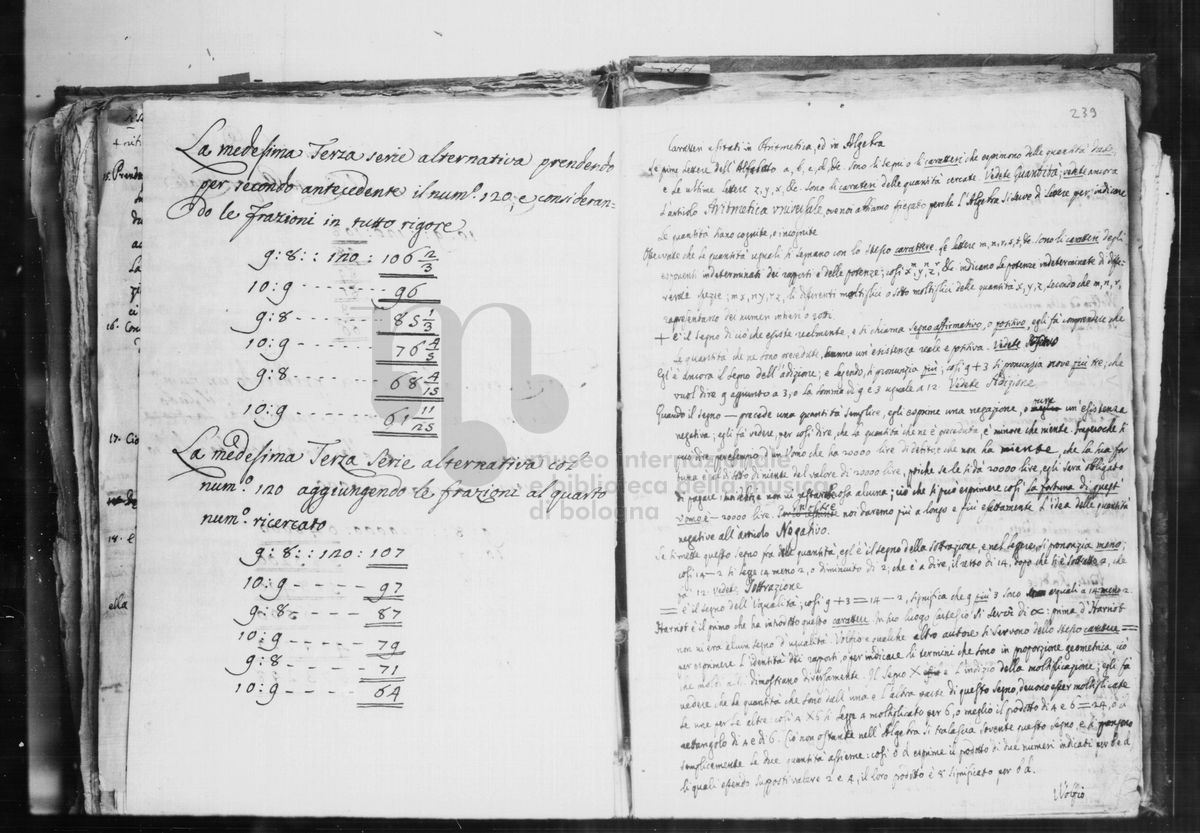 La medesima Terza serie alternativa prendendo
per secondo antecedente il num.º 120, e consideran=
do le frazioni in tutto rigore
9:8::120:106 2/3
10:9 - - - - - - - 96
9:8 - - - - - - - 85 1/3
10:9 - - - - - - - 76 4/5
9:8 - - - - - - - 68 4/15
10:9 - - - - - - - 61 11/25
La medesima Terza Serie alternativa col
num.º 120 aggiungendo le frazioni al quarto
num.º ricercato
9:8::120:107
10:9 - - - - - 97
9:8 - - - - - 87
10:9 - - - - - 79
9:8 - - - - - 71
10:9 - - - - - 64
15. Prend
16. Con
17. Cio
18. e
ella
239
Caratteri usitati in Aritmetica, ed in Algebra
Le prime lettere dell'Alfabeto a, b, c, d, &c. sono li segni o li caratteri che esprimono delle quantità date
e le ultime lettere z, y, x, &c. sono li carateri delle quantità cercate Vedete Quantità; vedete ancora
L'articolo Aritmetica universale, ove noi abbiamo spiegato perchè l'Algebra si serve di lettere per indicare
le quantità siano cognite, o incognite
Osservate che le quantità uguali si segnano con lo stesso carattere. Le lettere m, n, r, s, t, &c. sono li caratteri degli
esponenti indeterminati dei rapporti e delle potenze; così x^m, y^n, z^r, &c. indicano le potenze indeterminate di dif-
ferenti spezie; mx, ny, rz, li differenti moltiplici o sotto moltiplici delle quantità x, y, z, secondo che m, n, r,
rappresentano dei numeri intieri o rotti.
+ è il segno di ciò che esiste realmente, e si chiama segno affirmativo, o positivo, egli fà comprendere che
le quantità che ne sono precedute, hanno un'esistenza reale e positiva. Vedete
Egl'è ancora il segno dell'addizione; e legendo, si pronunzia più; così 9 + 3 si pronunzia nove più tre; che
vuol dire 9 aggiunto a 3, o la somma di 9 e 3 uguale a 12. Vedete Addizione
Quando il segno — precede una quantità semplice, egli esprime una negazione, o un'esistenza
negativa; egli fà vedere, per così dire, che la quantità che ne è preceduta, è minore che niente. Imperochè si
può dire per esempio d'un'Uomo che ha 20000 lire di debito, e che non ha niente, che la sua for
tuna è al di sotto di niente del valore di 20000 lire, poichè se le si dà 20000 lire, egli sarà obligato
di pagare
uomo è — 20000 lire. noi daremo più a longo e più esattamente l'idea delle quantità
negative all'articolo Negativo.
Se si mette questo segno fra due quantità, egl'è il segno della sottrazione, e nel leggere si pronunzia meno;
così 14 — 2 si legge 14 meno 2, o diminuito di 2; che è a dire, il resto di 14, dopo che si è sottratto 2, che
12. Vedete Sottrazione
= è il segno dell'Ugualità; così 9 + 3 = 14 — 2, significa che 9 più 3 sono eguali a 14 meno 2
Harriot è il primo che ha introdotto questo carattere. In suo luogo Cartesio si servì di ∝: prima d'Harriot
non vi era alcun segno d'ugualità. Volfio e qualche altro autore si servono dello stesso carattere =
per esprimere l'identità dei rapporti, o per indicare li termini che sono in proporzione geometrica, ciò
che molti altri dimostrano diversamente. Il segno X è l'indizio della moltiplicazione; egli fà
vedere che le quantità che sono dall'una e l'altra parte di questo segno, devono esser moltiplicate
le une per le altre: così 4 X 6 si legge 4 moltiplicato per 6, o meglio il prodotto di 4 e 6 = 24, o il
rettangolo di 4 e di 6. Ciò non ostante nell'Algebra si tralascia sovente questo segno, e si pongono
semplicemente le due quantità assieme: così b d esprime il prodotto di due numeri indicati per b e d
li quali essendo supposti valere 2 e 4, il loro prodotto è 8 significato per b d.
Wolfio
museo internazionale
e biblioteca della musica
di bologna